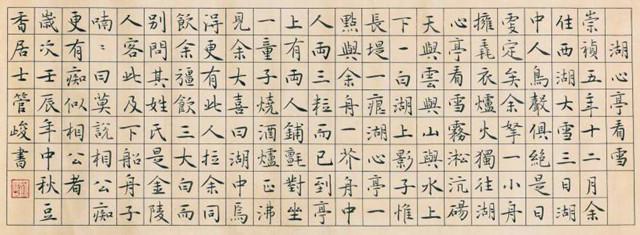 湖心亭看雪
崇禎五年十二月余
住西湖大雪三日湖
中人鳥聲俱絕是日
更定矣余拏一小舟
擁毳衣爐火獨往湖
心亭看雪霧淞沆碭
天與雲與山與水上
下一白湖上影子惟
長堤一痕湖心亭一
點與余舟一芥舟中
人兩三粒而已到亭
上有兩人鋪氈對坐
一童子燒酒爐正沸
見余大喜曰湖中焉
得更有此人拉余同
飲余彊飲三大白而
別問其姓氏是金陵
人客此及下船舟子
喃〻曰莫說相公癡
更有痴似相公者
歲次壬辰年中秋豆
香居士管峻書